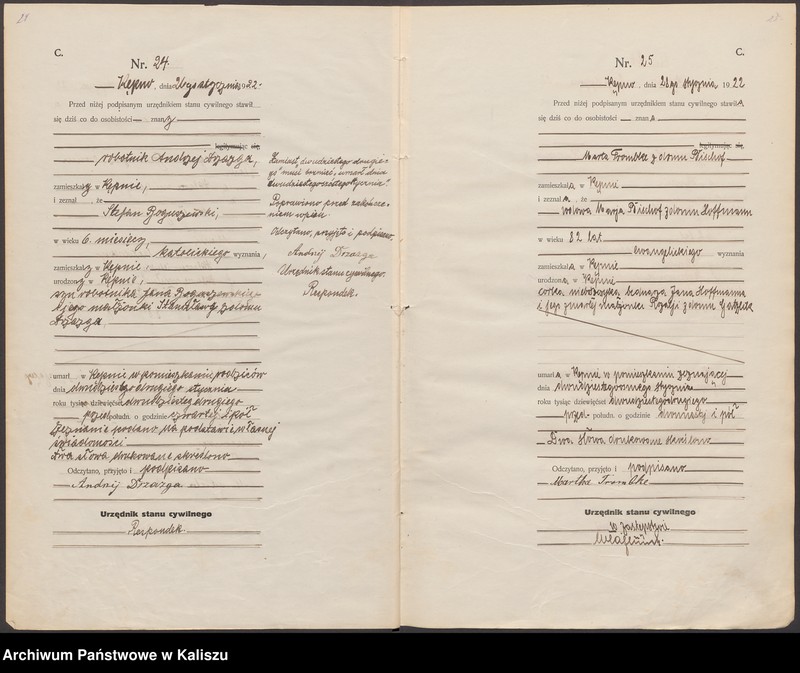 C.
Nr. 24.
Kępno, dnia 26go stycznia 1922.
Przed niżej podpisanym urzędnikiem stanu cywilnego stawił
się dziś co do osobistości znany
legitymując się,
robotnik Andrzej Drzazga,
zamieszkały w Kępnie,
i zeznał, że
Stefan Boguszewski,
w wieku 6 miesięcy,
katolickiego wyznania,
zamieszkały w Kępnie,
urodzony w Kępnie,
syn robotnika Jana
i jego małżonki Stanisławy z domu
Drzazga,
umarł w Kępnie w pomieszkaniu podziców
dnia dwudziestego drugiego stycznia
roku tysiąc dziewięćset dwudziestego drugiego
przed połudn. o godzinie czwartej i pół
Zeznanie podano na podstawie własnej
świadomości
Dwa słowa drukowane skreślono
Odczytano, przyjęto i podpisano
Andrij Drzazga
Urzędnik stanu cywilnego
Respondek.
Zamiast dwudziestego drugie-
go" musi brzmieć, umarł dnia
dwudziestego szóstego stycznia"
Poprawiono przed zakończe-
niem wpisu
Odczytano, przyjęto i podpisano
Andrij Drzazga
Urzędnik stanu cywilnego.
Respondek.
C.
Nr. 25
Kępno, dnia 28go stycznia 1922
Przed niżej podpisanym urzędnikiem stanu cywilnego stawiła
się dziś co do osobistości znana
legitymując się,
Marta Trombke z domu Bischof
zamieszkała w Kępnie
i zeznała, że
wdowa Marja Bischof z domu Hoffmann
w wieku 82 lat
ewangelickiego wyznania
zamieszkała w Kępnie
urodzona w Kępnie
córka nieboszczyka Jana Hoffmanna
i jego zmarłej małżonki Rozalji z domu
umarła w Kępnie w pomieszkaniu zeznającej
dnia dwudziestego stycznia
roku tysiąc dziewięćset dwudziestego drugiego
przed połudn. o godzinie dwunastej i pół
Dwa słowa drukowane skreślono
Odczytano, przyjęto i podpisano
Martha Trombke
Urzędnik stanu cywilnego
w zastępstwie
Archiwum Państwowe w Kaliszu